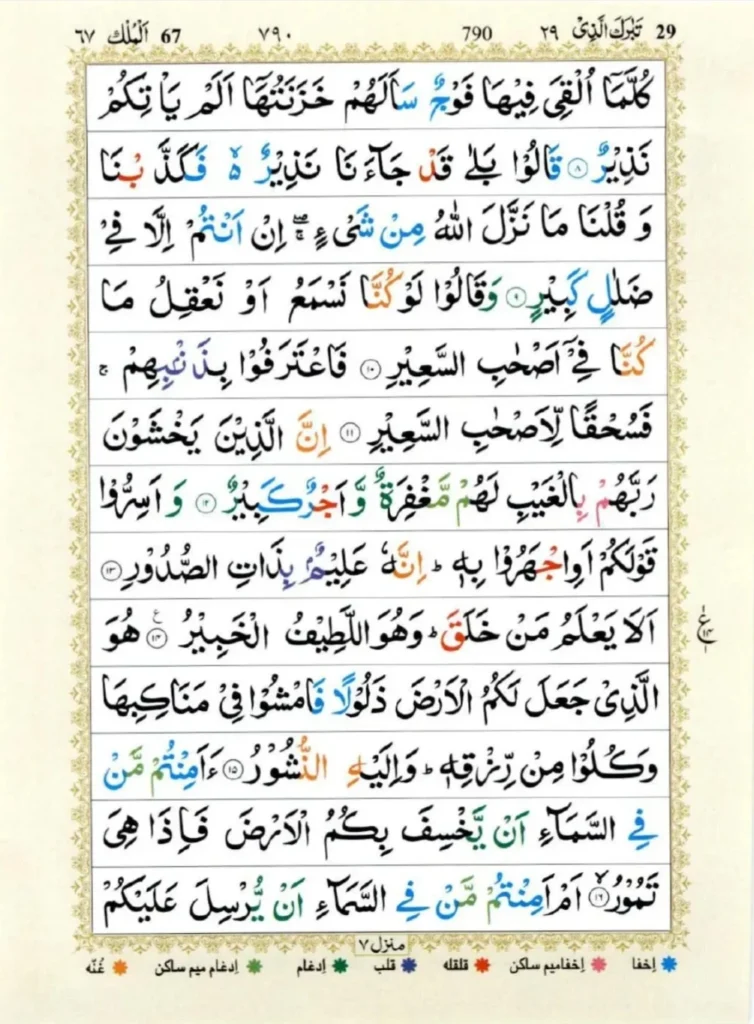 29 تَبٰرَكَ الَّذِیْ ٢٩ 790 ٧٩٠ 67 اَلْمُلْك ٦٧
كُلَّمَاۤ اُلْقِیَ فِیْهَا فَوْجٌ سَاَلَهُمْ خَزَنَتُهَاۤ اَلَمْ یَاْتِكُمْ
نَذِیْرٌ ۸ قَالُوْا بَلٰی قَدْ جَآءَنَا نَذِیْرٌ ۵ فَكَذَّبْنَا
وَ قُلْنَا مَا نَزَّلَ اللّٰهُ مِنْ شَیْءٍ ۖۚ اِنْ اَنْتُمْ اِلَّا فِیْ
ضَلٰلٍ كَبِیْرٍ ۹ وَقَالُوْا لَوْ كُنَّا نَسْمَعُ اَوْ نَعْقِلُ مَا
كُنَّا فِیْۤ اَصْحٰبِ السَّعِیْرِ ۱۰ فَاعْتَرَفُوْا بِذَنْۢبِهِمْ ۚ
فَسُحْقًا لِّاَصْحٰبِ السَّعِیْرِ ۱۱ اِنَّ الَّذِیْنَ یَخْشَوْنَ
رَبَّهُمْ بِالْغَیْبِ لَهُمْ مَّغْفِرَةٌ وَّ اَجْرٌ كَبِیْرٌ ۱۲ وَ اَسِرُّوْا
قَوْلَكُمْ اَوِ اجْهَرُوْا بِهٖ ؕ اِنَّهٗ عَلِیْمٌۢ بِذَاتِ الصُّدُوْرِ ۱۳
اَلَا یَعْلَمُ مَنْ خَلَقَ ؕ وَهُوَ اللَّطِیْفُ الْخَبِیْرُ ۱۴ هُوَ ع ۱۴ ۱
الَّذِیْ جَعَلَ لَكُمُ الْاَرْضَ ذَلُوْلًا فَامْشُوْا فِیْ مَنَاكِبِهَا
وَكُلُوْا مِنْ رِّزْقِهٖ ؕ وَاِلَیْهِ النُّشُوْرُ ۱۵ ءَاَمِنْتُمْ مَّنْ
فِی السَّمَآءِ اَنْ یَّخْسِفَ بِكُمُ الْاَرْضَ فَاِذَا هِیَ
تَمُوْرُ ۱۶ اَمْ اَمِنْتُمْ مَّنْ فِی السَّمَآءِ اَنْ یُّرْسِلَ عَلَیْكُمْ
منزل ٧
اِخفا اِخفامیم ساکن قلقله قلب اِدغام اِدغام میم ساکن غُنّه